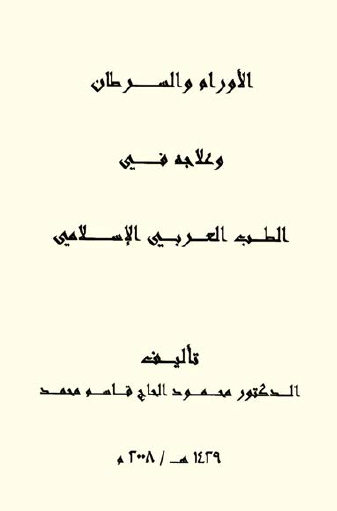 الأورام والسرطان
وعلاجه في
الطب العربي الإسلامي
تأليف
الدكتور محمود الحاج قاسم محمد
١٤٢٩ هـ / ٢٠٠٨ م